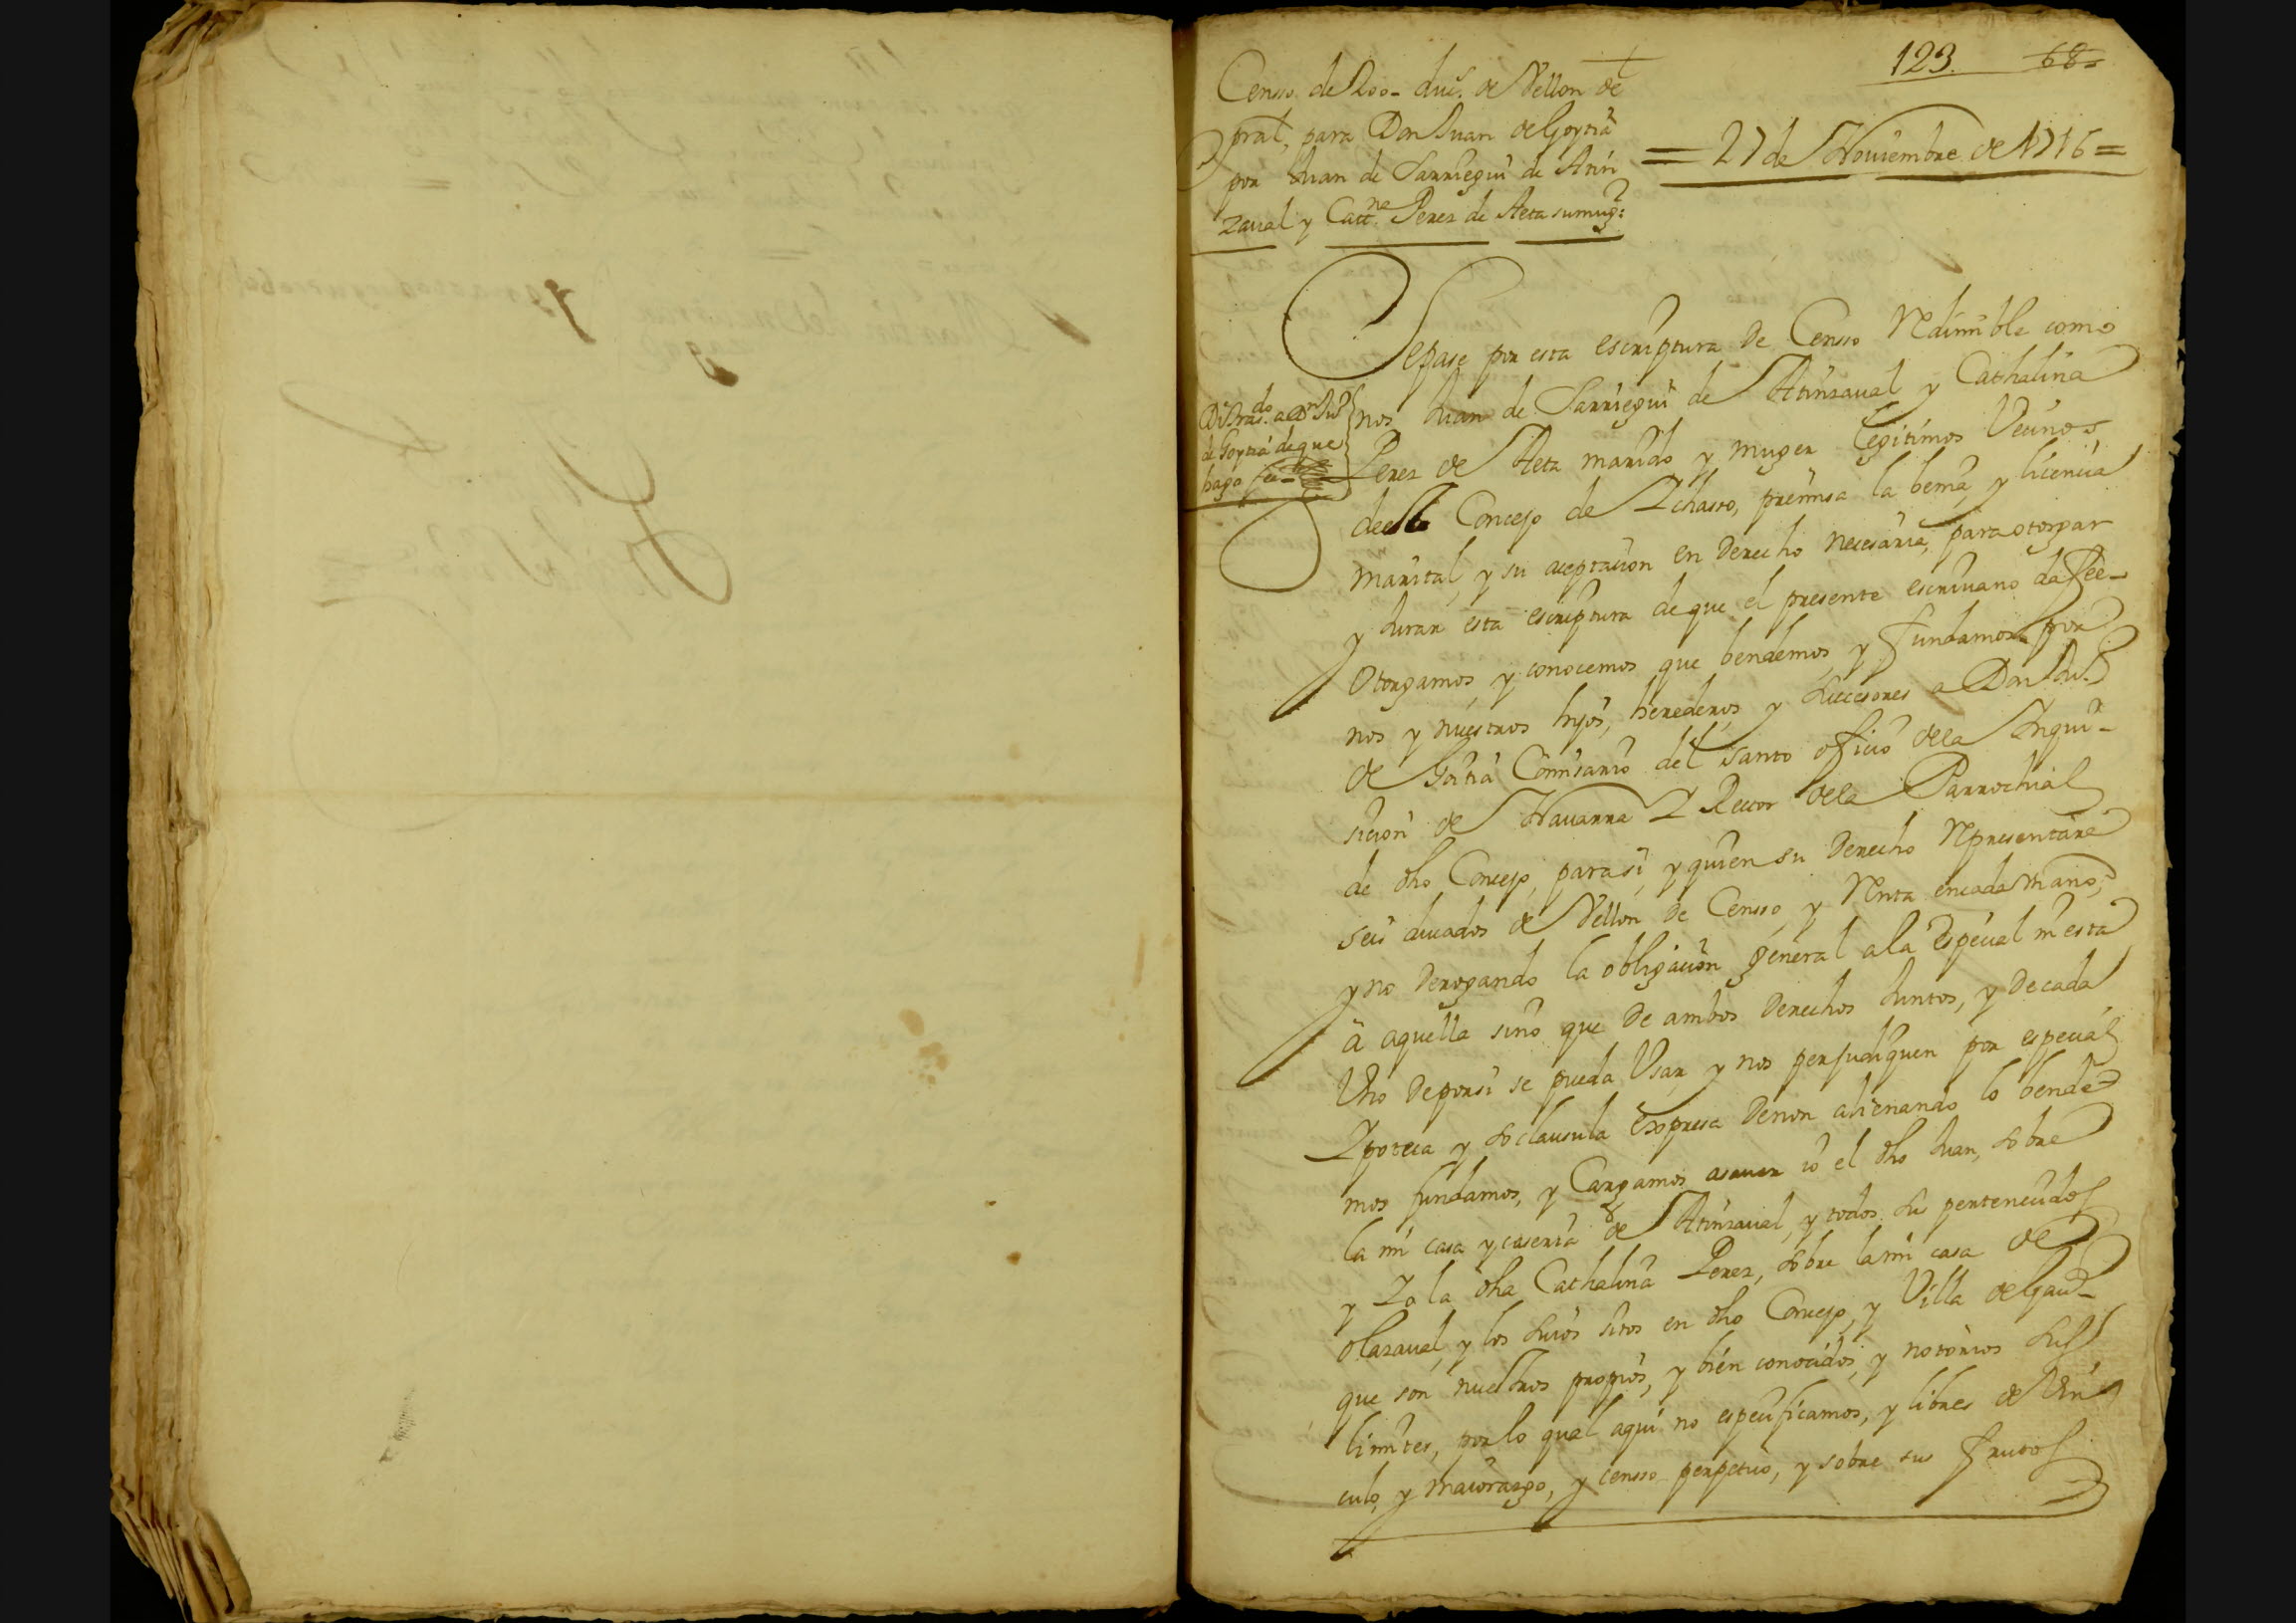 123. 68
Censo de 200 duc.s de Vellon de
pral, para Don Juan de Goytia
por Juan de Sarriegui de Atin
zaual y Catt.na Perez de Aeta su mug.r
= 27 de Nouiembre de 1716 =
Sepase por esta escriptura de Censso Redimible como
nos Juan de Sarriegui de Atinzaual y Cathalina
Perez de Aeta marido y muger legitimos Vecinos
deeste Concejo de Ichasso, premisa la benia y licencia
marital, y su aceptacion en derecho necesaria, para otorgar
y Jurar esta escriptura de que el presente escriuano da fee
Otorgamos y conocemos que bendemos y fundamos por
nos y nuestros hijos, herederos y Succesores a Don Ju.o
de Goitia Comisario del santo oficio dela Inqui-
sicion de Nauarra Y Rector dela Parrochial
de dho Concejo, para si, y quien su derecho Representare
seis ducados de Vellon de Censso, y Renta encada un año,
y no derogando la obligacion general ala especial ni esta
à aquella sino que de ambos derechos Juntos, y de cada
Uno deporsi se pueda Usar y nos perjudiquen por especial
Ypoteca y so clausula Expresa denon alienando lo bende
mos fundamos, y Cargamos asauer io el dho Juan, sobre
la mi casa y caseria de Atinzaual, y todos Su pertenecidos
y Yo la dha Cathalina Perez, sobre la mi casa de
Olazaual, y los Suios sitos en dho Concejo, y Villa de Gaui-
que son nuestros propios, y bien conocidos, y notorios Sus
limites, por lo qual aqui no especificamos, y libres de Vin
culo, y maiorazgo, y censso perpetuo, y sobre sus frutos
Di trasdo. a Dn Juo
de Goytia de que
hago fee